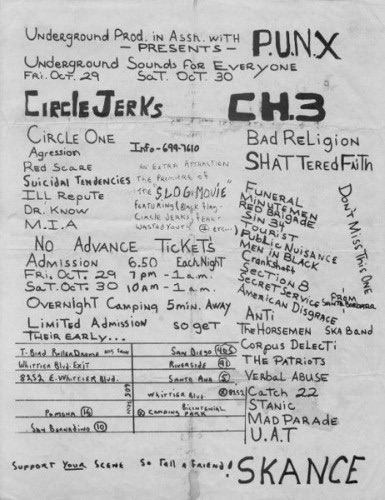 Underground Prod. in Assn. with P.U.N.X
— PRESENTS —
Underground Sounds for Everyone
Fri. Oct. 29 Sat. Oct. 30
Circle Jerks
Circle One
Info-699-7610
Agression
Red Scare
Suicidal Tendencies
Ill Repute
Dr. Know
M.I.A
An Extra Attraction
The Premiere of
The "SLOG MOVIE"
Featuring (Black Flag,
Circle Jerks, Fear,
Wasted Youth, @ etc...)
CH.3
Bad Religion
Shattered Faith
Funeral
Minutemen
Red Brigade
Sin 34
Tourist
Public Nuisance
Men in Black
Crankshaft
Section 8
Secret Service
American Disgrace
From Santa Barbara
Don't Miss This One
Anti
The Horsemen Ska Band
Corpus Delecti
The Patriots
Verbal Abuse
Catch 22
Stanic
Mad Parade
U.A.T
SKANCE
No Advance Tickets
Admission 6.50 Each Night
Fri. Oct. 29 7pm - 1am.
Sat. Oct. 30 10am - 1am.
Overnight Camping 5min. Away
Limited Admission so get
Their early...
T-Bird RollerDrome
Whittier Blvd. Exit
8252 E. Whittier Blvd.
605
San Diego 405
Riverside 91
Santa Ana 5
Whittier Blvd.
8252
@ Camping Bicentennial Park
Pomona
San Bernadino 10
Support Your Scene So Tell a Friend!